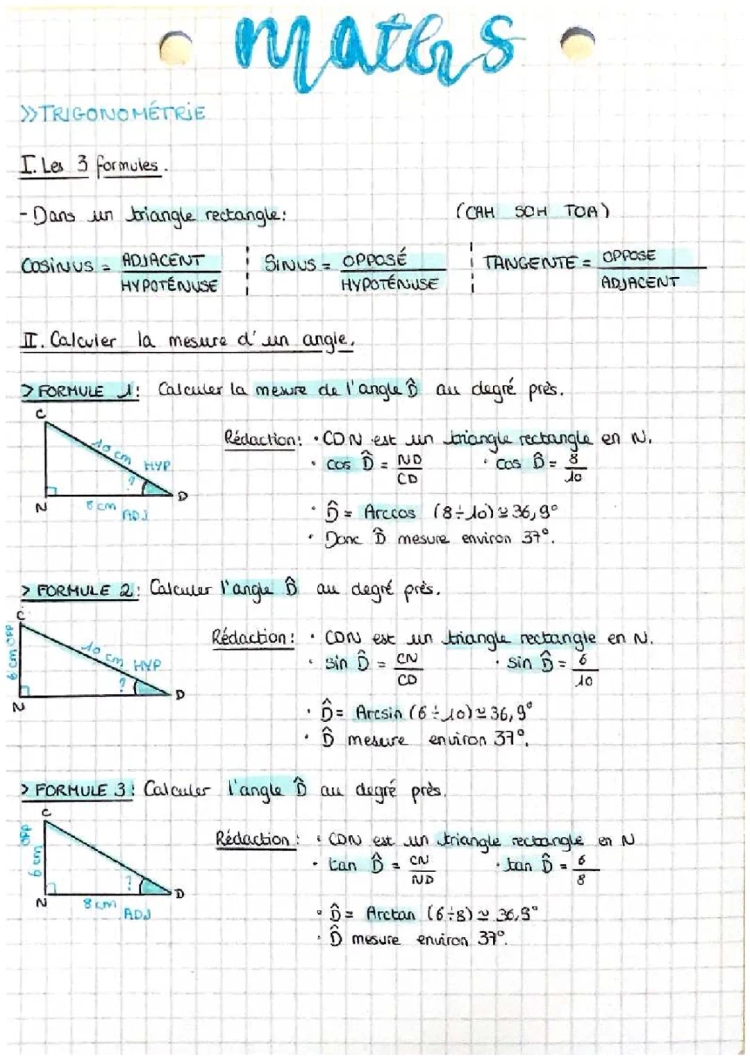 maths
>> TRIGONOMÉTRIE
I. Les 3 formules.
- Dans un triangle rectangle: (CAH SOH TOA)
COSINUS = ADJACENT / HYPOTÉNUSE SINUS = OPPOSÉ / HYPOTÉNUSE TANGENTE = OPPOSE / ADJACENT
II. Calculer la mesure d'un angle.
> FORMULE 1: Calculer la mesure de l'angle D̂ au degré près.
C
10 cm HYP
?
N 8 cm ADJ D
Rédaction: • CDN est un triangle rectangle en N.
• cos D̂ = ND / CD • cos D̂ = 8 / 10
• D̂ = Arccos (8÷10) ≃ 36,9°
• Donc D̂ mesure environ 37°.
> FORMULE 2: Calculer l'angle D̂ au degré près.
C
6 cm OPP
10 cm HYP
?
N D
Rédaction: • CDN est un triangle rectangle en N.
• sin D̂ = CN / CD • sin D̂ = 6 / 10
• D̂ = Arcsin (6÷10) ≃ 36,9°
• D̂ mesure environ 37°.
> FORMULE 3: Calculer l'angle D̂ au degré près.
C
6 cm OPP
?
N 8 cm ADJ D
Rédaction: • CDN est un triangle rectangle en N
• tan D̂ = CN / ND • tan D̂ = 6 / 8
• D̂ = Arctan (6÷8) ≃ 36,9°
• D̂ mesure environ 37°.